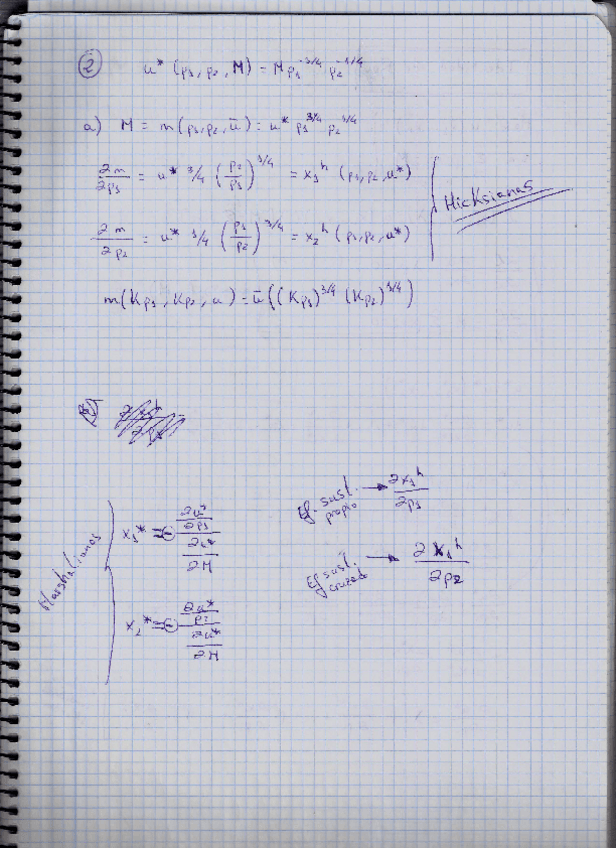 ②
u* (p₁, p₂, M) = M p₁^-3/4 p₂^-1/4
a) M = m(p₁, p₂, ū) = u* p₁^3/4 p₂^1/4
∂m/∂p₁ = u* 3/4 (p₂/p₁)^1/4 = x₁^h (p₁, p₂, u*)
Hicksianas
∂m/∂p₂ = u* 1/4 (p₁/p₂)^3/4 = x₂^h (p₁, p₂, u*)
m(Kp₁, Kp₂, u) = ū((Kp₁)^3/4 (Kp₂)^1/4)
Marshalianas
x₁* = ⊖ (∂u*/∂p₁)/(∂u*/∂M)
x₂* = ⊖ (∂u*/p₂)/(∂u*/∂M)
Ef. sust. propio → ∂x₁^h/∂p₁
Ef sust. cruzad → ∂x₁^h/∂p₂